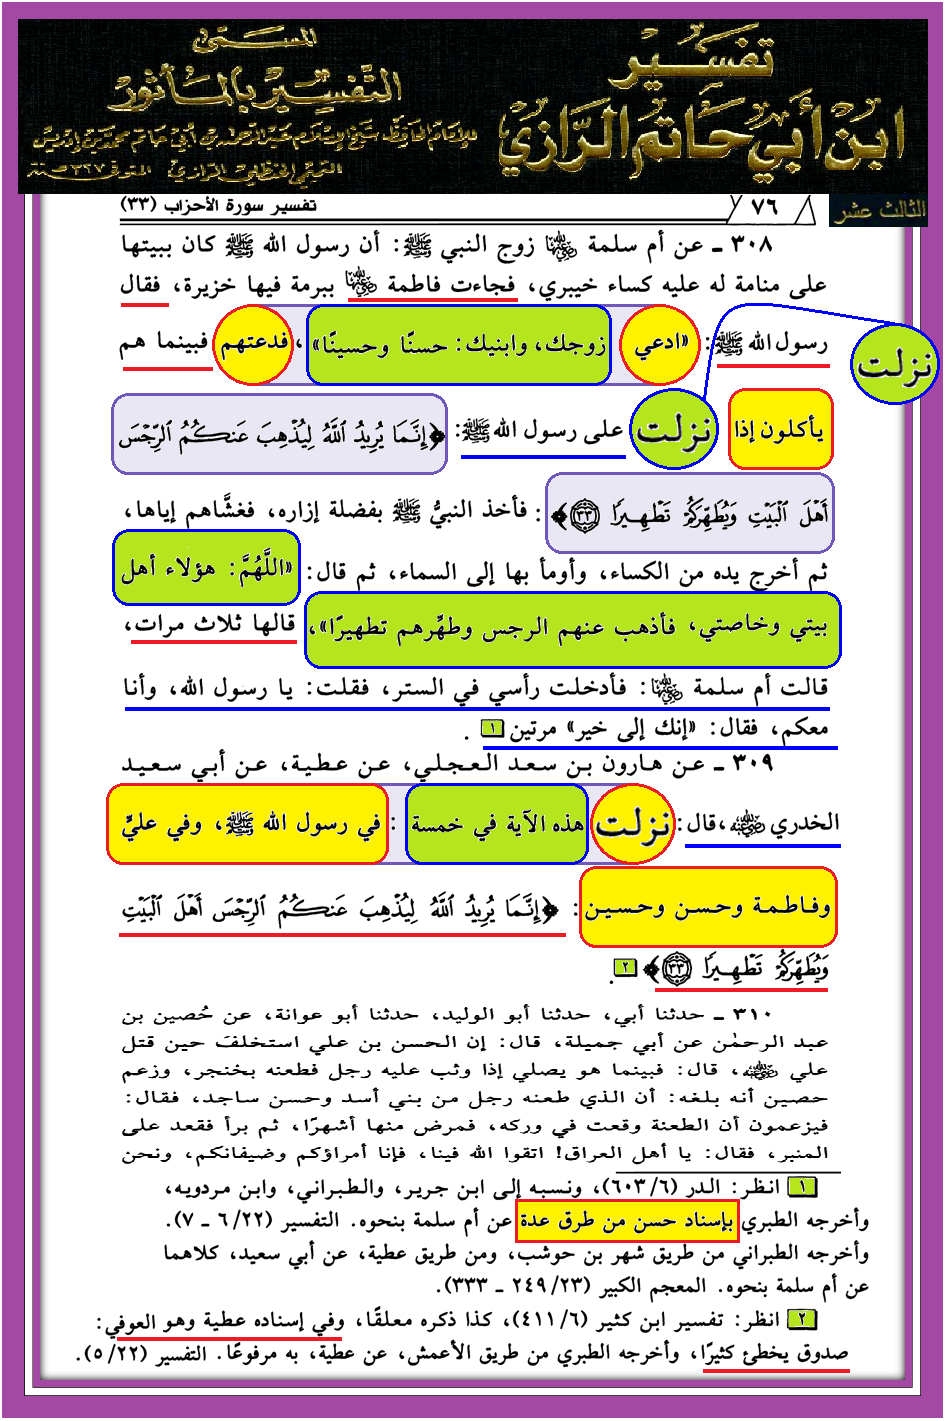 تفسير
ابن أبي حاتم الرازي
المسمى
التفسير بالمأثور
للإمام الحافظ شيخ الإسلام عبد الرحمن بن أبي حاتم محمد بن إدريس
التميمي الحنظلي الرازي المتوفى ٣٢٧ سنة
الثالث عشر
٧٦
تفسير سورة الأحزاب (٣٣)
٣٠٨ ـ عن أم سلمة رضي الله عنها زوج النبي ﷺ: أن رسول الله ﷺ كان ببيتها
على منامة له عليه كساء خيبري، فجاءت فاطمة رضي الله عنها ببرمة فيها خزيرة، فقال
رسول الله ﷺ: «ادعي زوجك، وابنيك: حسنًا وحسينًا»، فدعتهم فبينما هم
نزلت
يأكلون إذا نزلت على رسول الله ﷺ: ﴿إِنَّمَا يُرِيدُ اللَّهُ لِيُذْهِبَ عَنكُمُ الرِّجْسَ
أَهْلَ الْبَيْتِ وَيُطَهِّرَكُمْ تَطْهِيرًا ٣٣﴾: فأخذ النبيُّ ﷺ بفضلة إزاره، فغشَّاهم إياها،
ثم أخرج يده من الكساء، وأومأ بها إلى السماء، ثم قال: «اللَّهُمَّ: هؤلاء أهل
بيتي وخاصتي، فأذهب عنهم الرجس وطهِّرهم تطهيرًا»، قالها ثلاث مرات،
قالت أم سلمة رضي الله عنها: فأدخلت رأسي في الستر، فقلت: يا رسول الله، وأنا
معكم، فقال: «إنك إلى خير» مرتين ١ .
٣٠٩ ـ عن هارون بن سعد العجلي، عن عطية، عن أبي سعيد
الخدري رضي الله عنه، قال: نزلت هذه الآية في خمسة: في رسول الله ﷺ، وفي عليٍّ
وفاطمة وحسن وحسين: ﴿إِنَّمَا يُرِيدُ اللَّهُ لِيُذْهِبَ عَنكُمُ الرِّجْسَ أَهْلَ الْبَيْتِ
وَيُطَهِّرَكُمْ تَطْهِيرًا ٣٣﴾ ٢ .
٣١٠ ـ حدثنا أبي، حدثنا أبو الوليد، حدثنا أبو عوانة، عن حُصين بن
عبد الرحمٰن عن أبي جميلة، قال: إن الحسن بن علي استخلف حين قتل
علي رضي الله عنه، قال: فبينما هو يصلي إذا وثب عليه رجل فطعنه بخنجر، وزعم
حصين أنه بلغه: أن الذي طعنه رجل من بني أسد وحسن ساجد، فقال:
فيزعمون أن الطعنة وقعت في وركه، فمرض منها أشهرًا، ثم برأ فقعد على
المنبر، فقال: يا أهل العراق! اتقوا الله فينا، فإنا أمراؤكم وضيفانكم، ونحن
١ انظر: الدر (٦/٦٠٣)، ونسبه إلى ابن جرير، والطبراني، وابن مردويه،
وأخرجه الطبري بإسناد حسن من طرق عدة عن أم سلمة بنحوه. التفسير (٢٢/٦ ـ ٧).
وأخرجه الطبراني من طريق شهر بن حوشب، ومن طريق عطية، عن أبي سعيد، كلاهما
عن أم سلمة بنحوه. المعجم الكبير (٢٣/٢٤٩ ـ ٣٣٣).
٢ انظر: تفسير ابن كثير (٦/٤١١)، كذا ذكره معلقًا، وفي إسناده عطية وهو العوفي:
صدوق يخطئ كثيرًا، وأخرجه الطبري من طريق الأعمش، عن عطية، به مرفوعًا. التفسير (٢٢/٥).